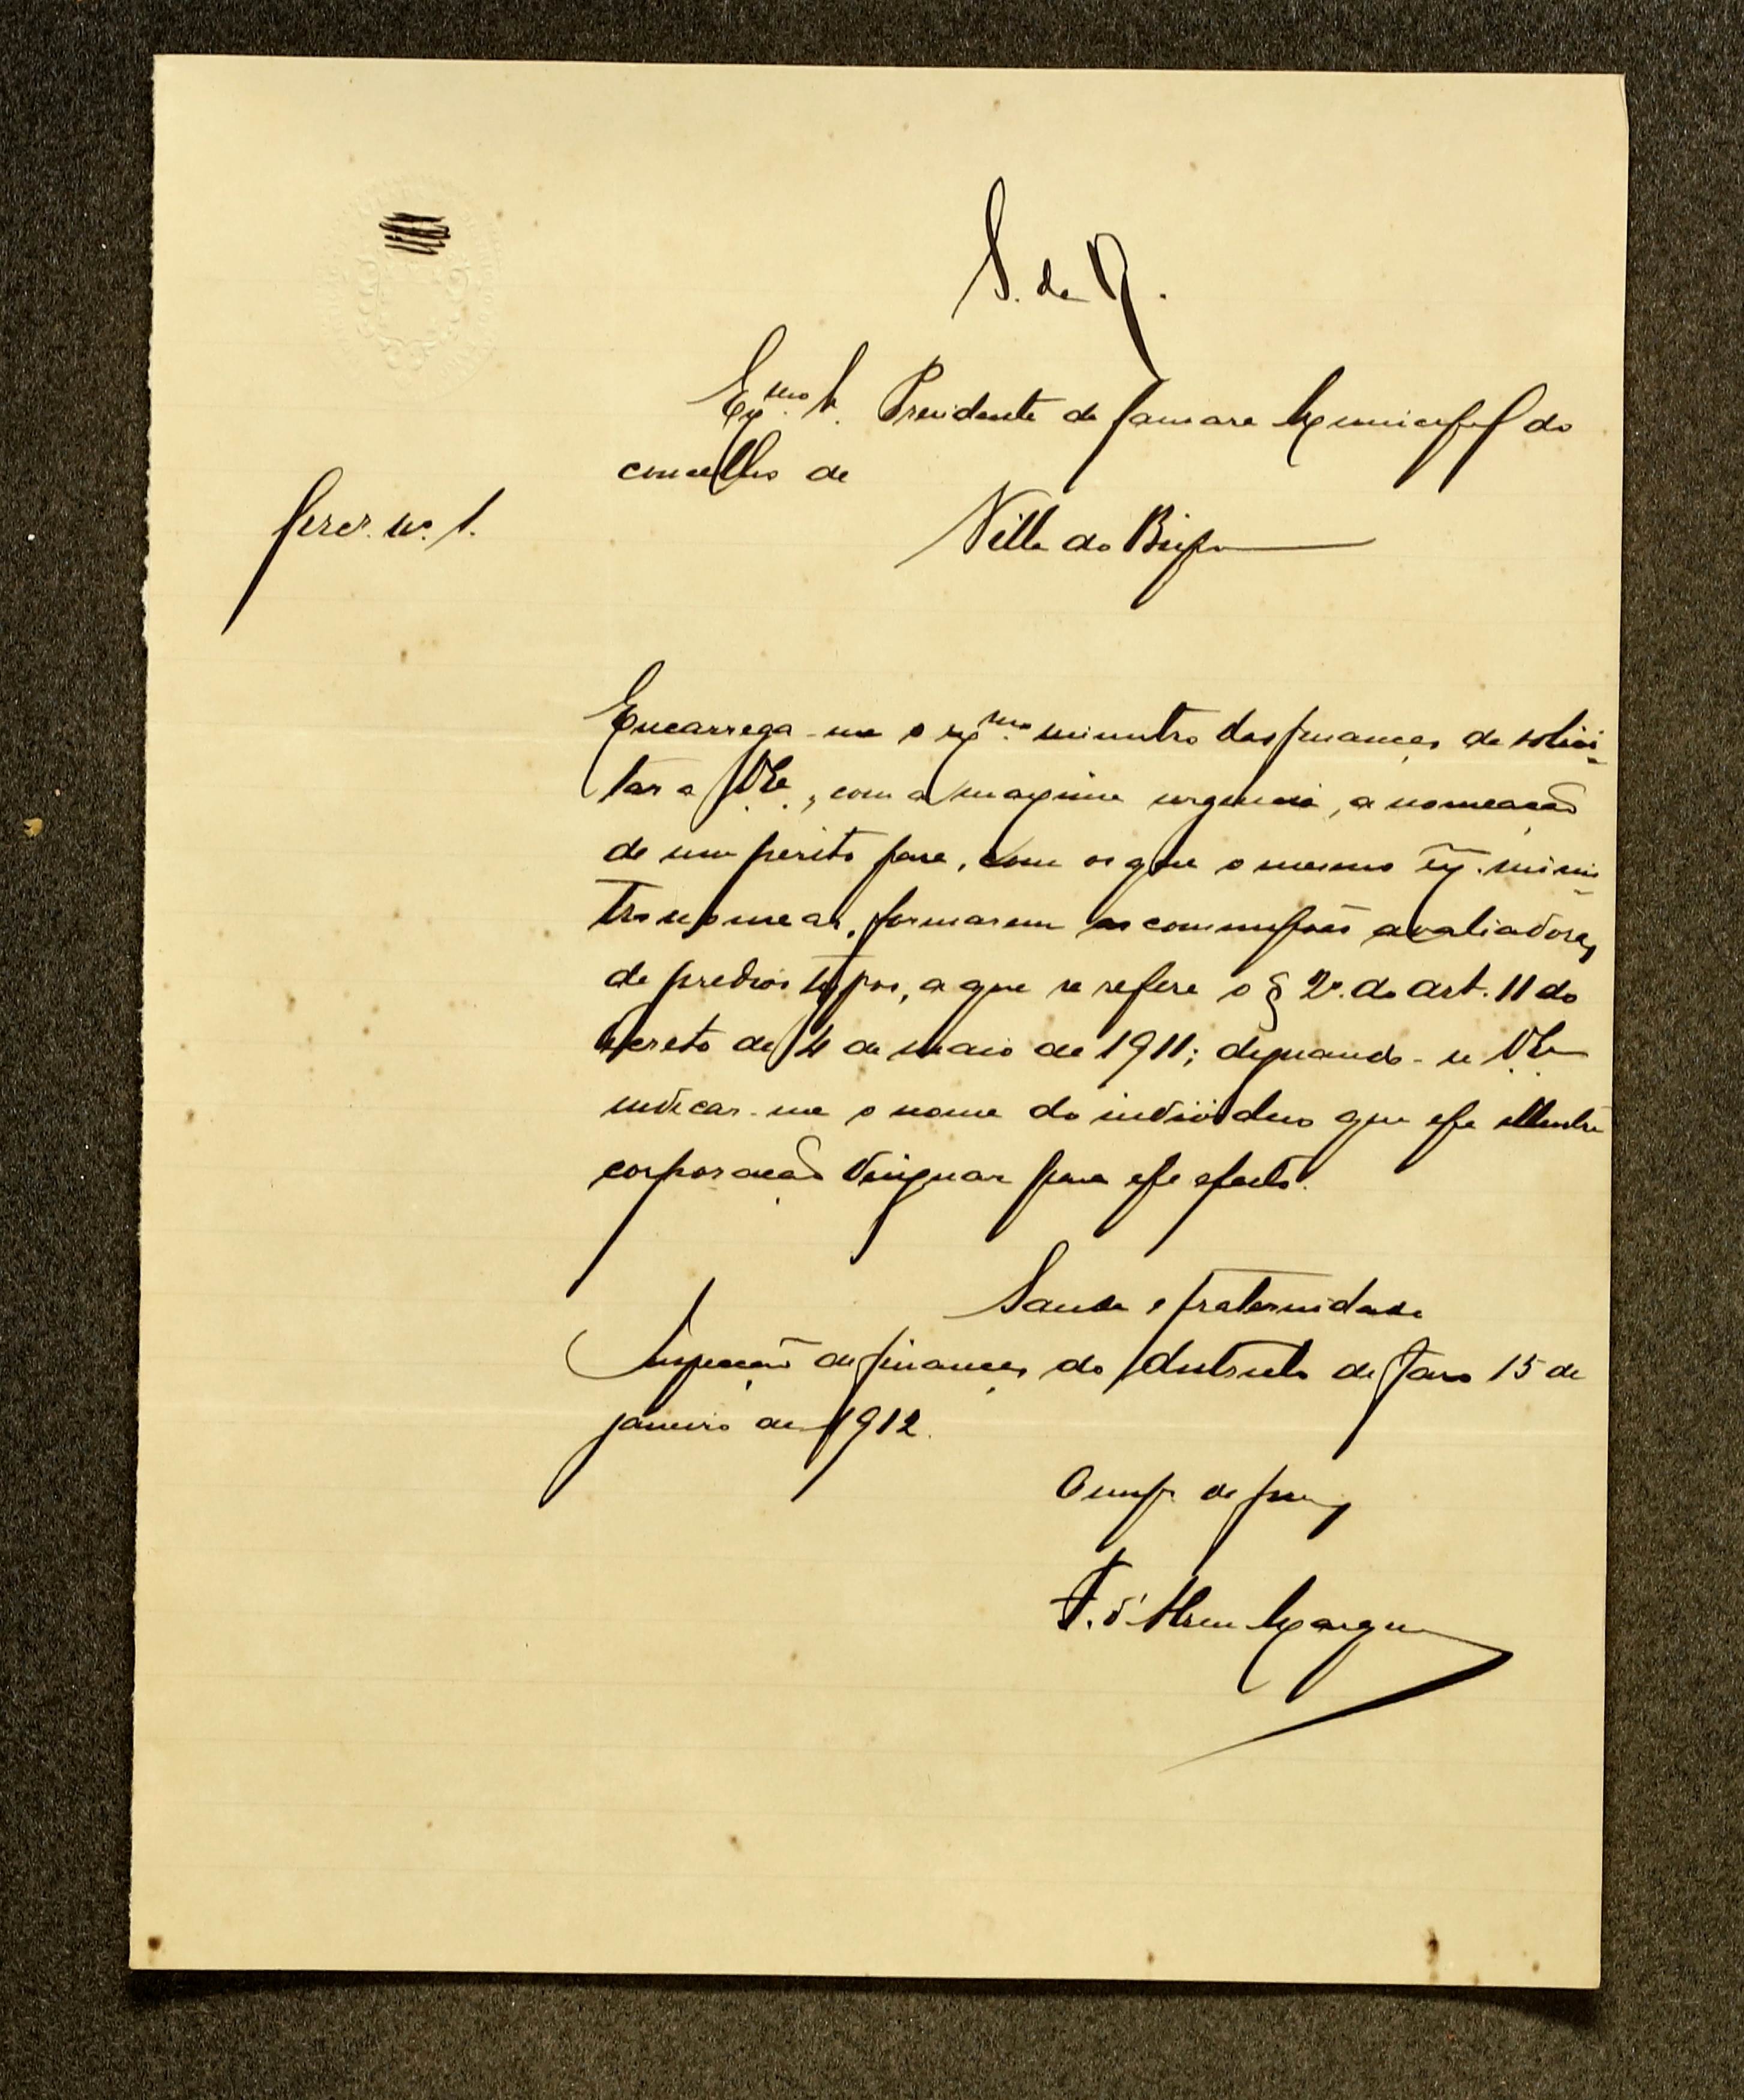 S. da R.
Exmo. Sr. Presidente da Camara Municipal do
concelho de
Villa do Bispo
Circr. no. 1.
Encarrega-me o exmo. ministro das finanças de solici-
tar a V. E., com a maxima urgencia, a nomeação
de um perito para, com os que o mesmo ex. minis-
tro nomear, formarem as commissões avaliadoras
de predios, a que se refere o § 2º. do art. 11 do
decreto de 4 de maio de 1911; dignando-se V. E.
indicar-me o nome do individuo que essa illustre
corporação designar para esse efeito.
Saude e fraternidade
Inspecção de finanças do districto de Faro 15 de
janeiro de 1912.
O insp. de finanças
F. d'Abreu Marques